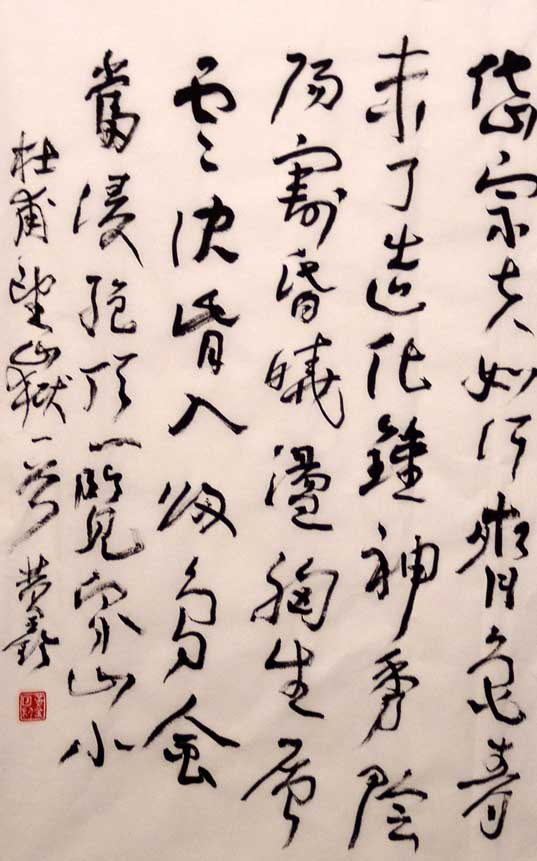 岱宗夫如何齊魯青
未了造化鍾神秀陰
陽割昏曉盪胸生層
雲決眥入歸鳥會
當凌絕頂一覽眾山小
杜甫望嶽一首 黄